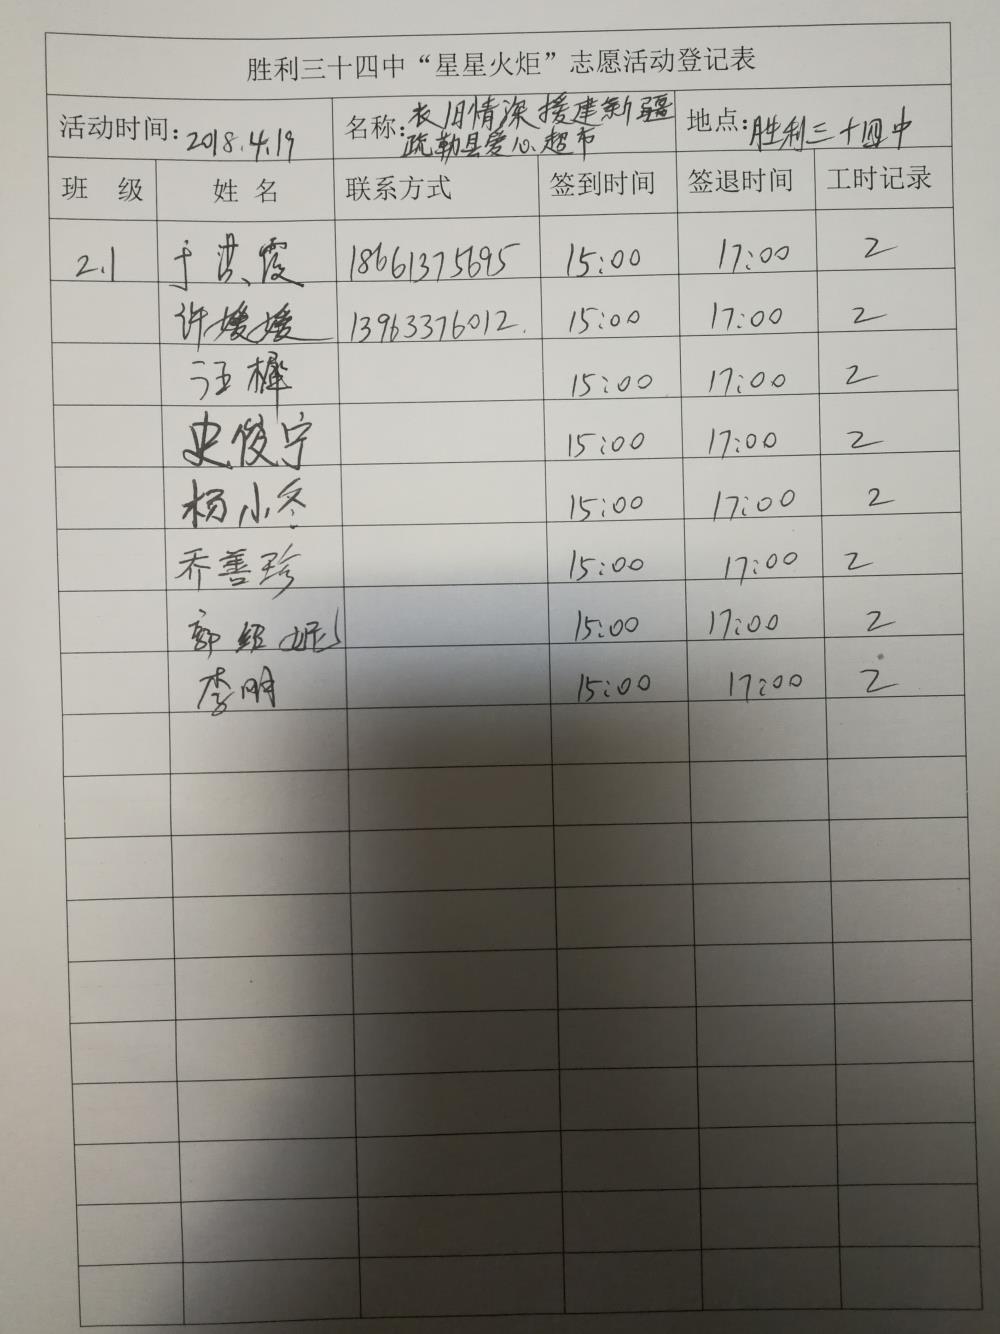 胜利三十四中“星星火炬”志愿活动登记表
活动时间: 2018.4.19 名称: 衣旧情深援建新疆疏勒县爱心超市 地点: 胜利三十四中
班 级 姓 名 联系方式 签到时间 签退时间 工时记录
2.1 于洪霞 18661375695 15:00 17:00 2
许媛媛 13963376012. 15:00 17:00 2
汪樨 15:00 17:00 2
史俊宁 15:00 17:00 2
杨小冬 15:00 17:00 2
乔善珍 15:00 17:00 2
郭绍 15:00 17:00 2
李明 15:00 17:00 2